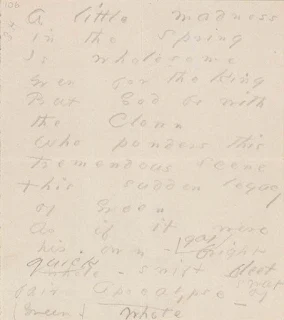 A little madness
in the Spring
Is wholesome
even for the King
But God be with
the Clown
Who ponders this
tremendous scene
This sudden legacy
of Green
As if it were
his own - gay bright
quick whole - swift fleet
fair Apocalypse - of
Green whole